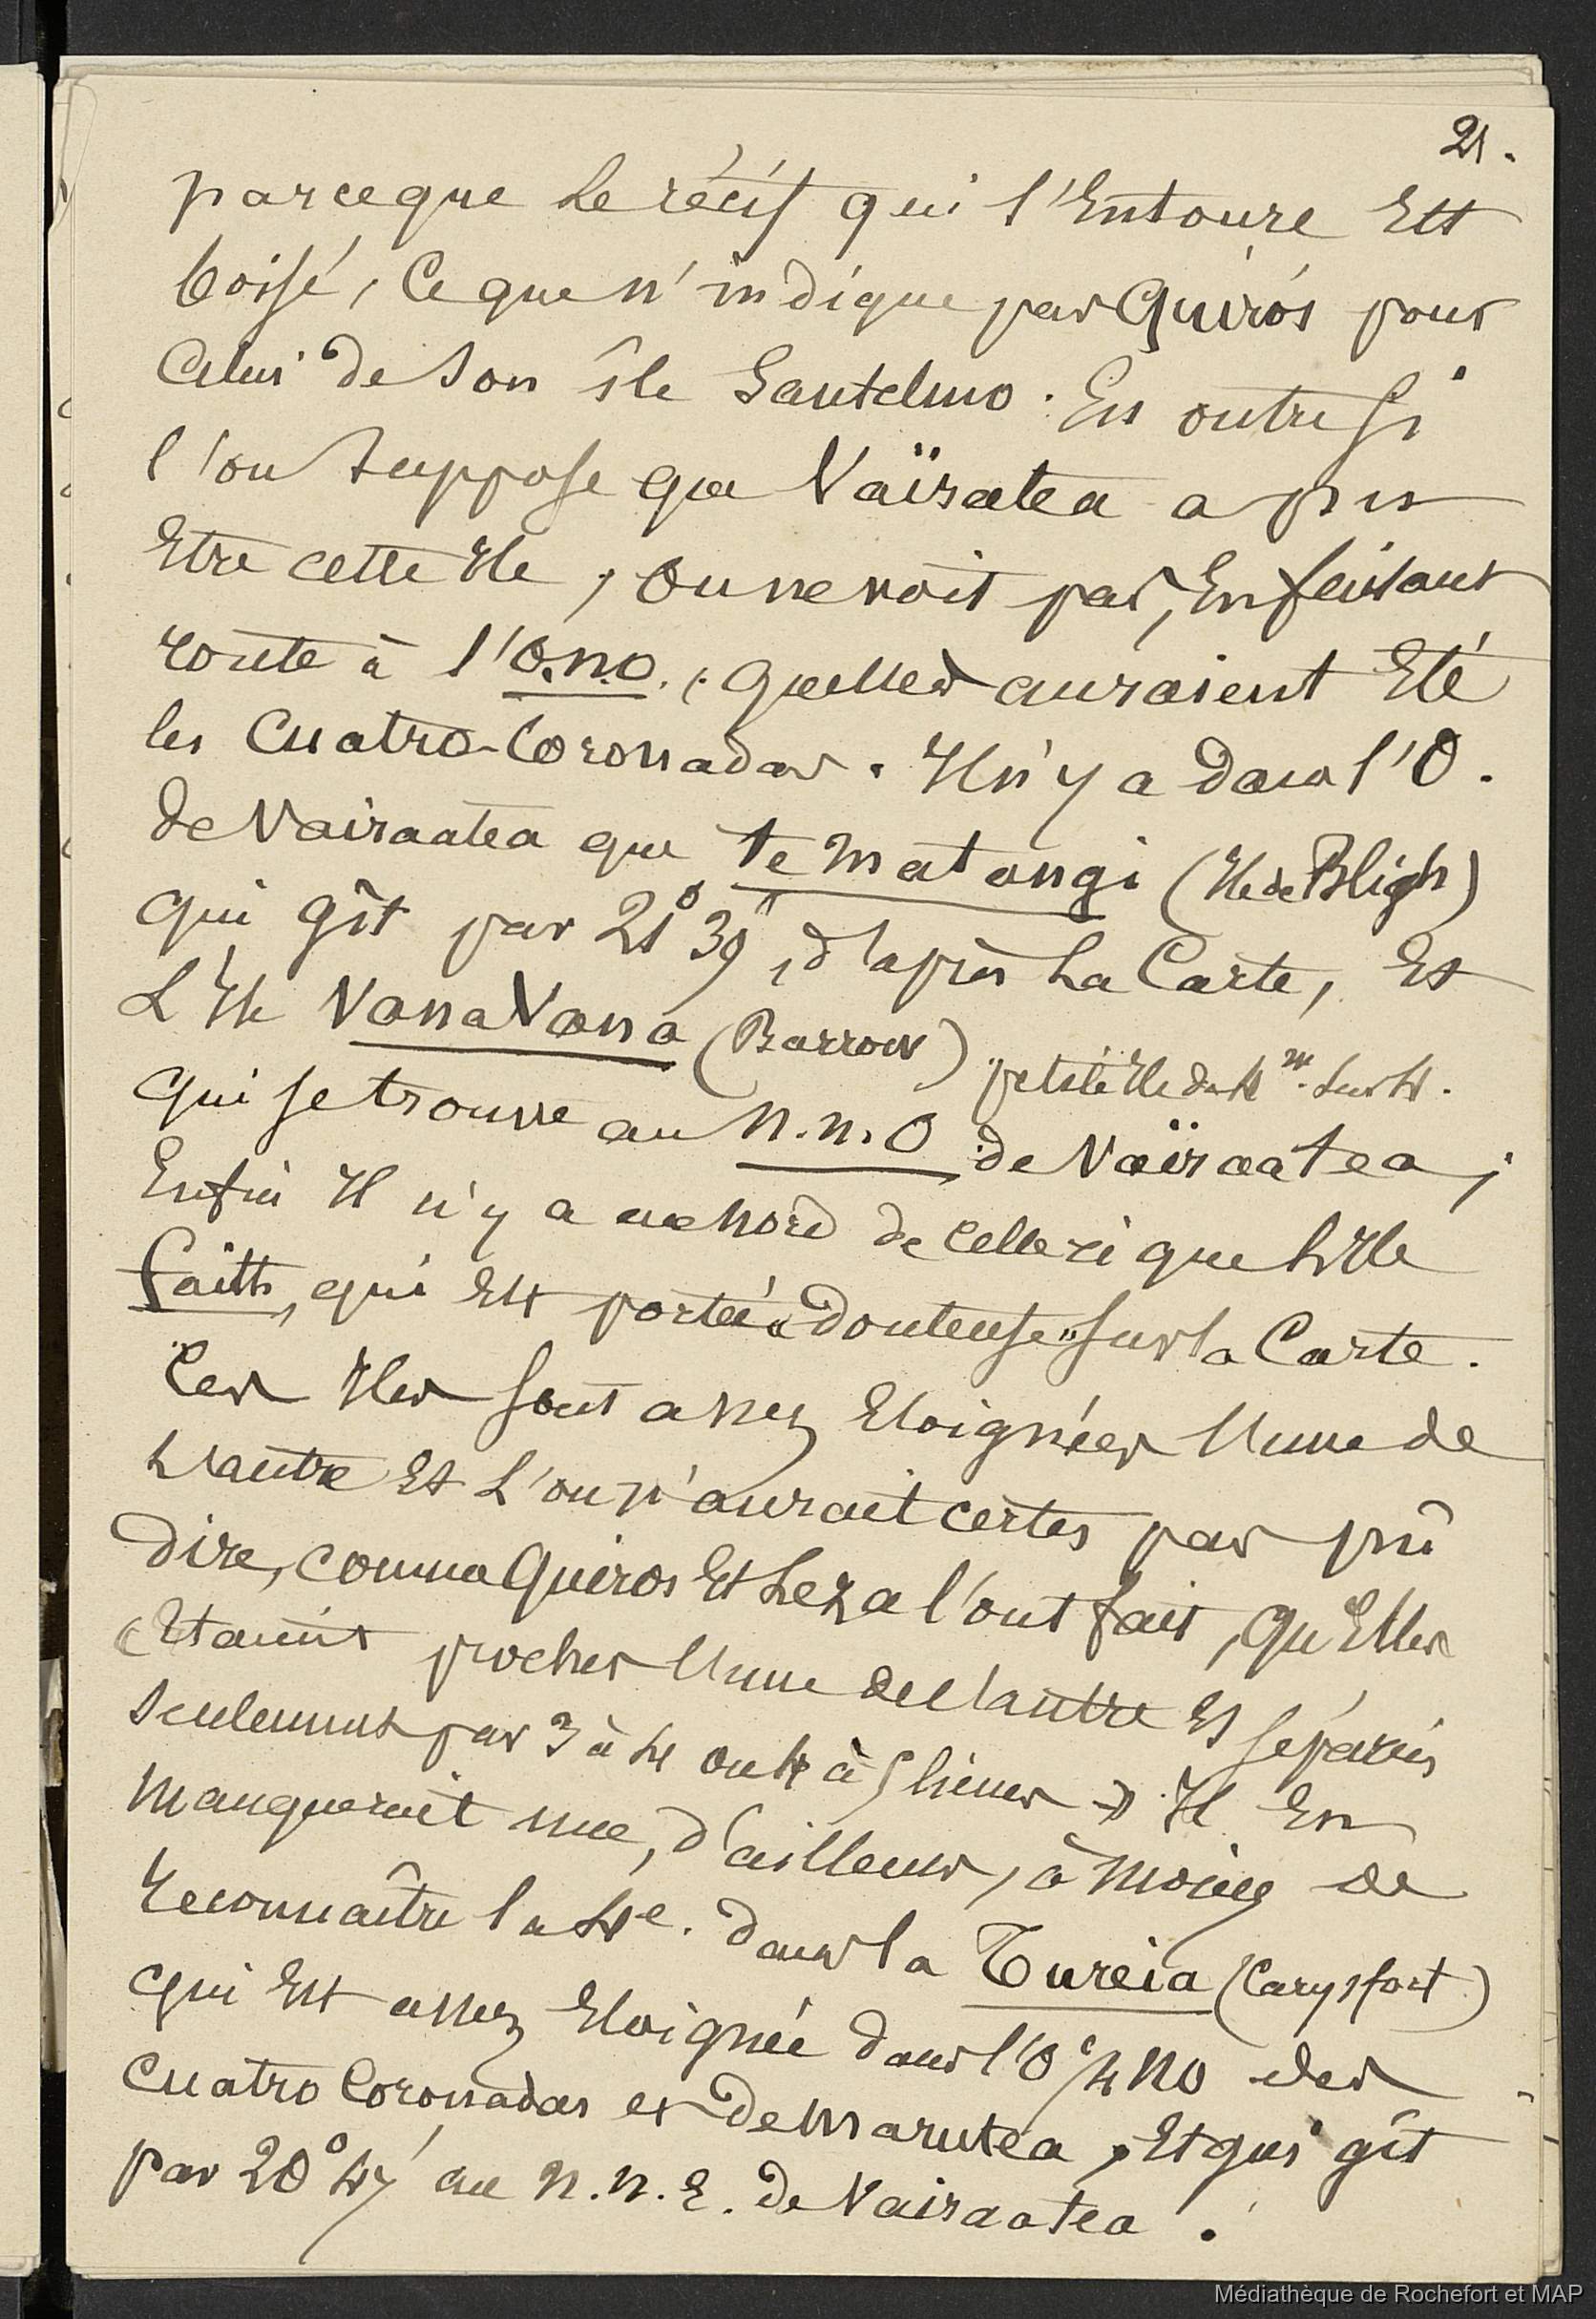 21.
parceque le récif qui l'Entoure Est
boisé, ce que n'indique pas Quirós pour
Celui de son île Santelmo. En outre si
l'on suppose que Vaïratea a pu
Etre cette Ile, on ne voit pas, En faisant
route à l'O.N.O., quelles auraient Eté
les Cuatro-Coronadas. Il n'y a dans l'O.
de Vairaatea que Te Matangi (Ile de Bligh)
qui gît par 21° 39", d'après La Carte, Et
L'Ile VanaVana (Barrow) petite Ile de 4 m. sur 4.
qui se trouve au N.N.O de Vaïraatea;
Enfin Il n'y a au Nord de celle ci que l'Ile
Faith, qui Est portée "douteuse" sur la Carte.
Ces Iles sont assez Eloignées l'une de
l'autre Et L'on n'aurait certes pas pû
dire, comme Quiros Et Leza l'ont fait, qu'Elles
Etaient proches l'une de l'autre Et séparées
seulement par 3 à 4 ou 4 à 5 lieues » Il En
manquerait une, d'ailleurs, à moins de
reconnaître la 4e. dans la Tureia (Carysfort)
qui Est assez Eloignée dans l'O 1/4 NO des
Cuatro Coronadas et de Marutea, Et qui gît
par 20° 47' au N.N.E. de Vairaatea.
Médiathèque de Rochefort et MAP